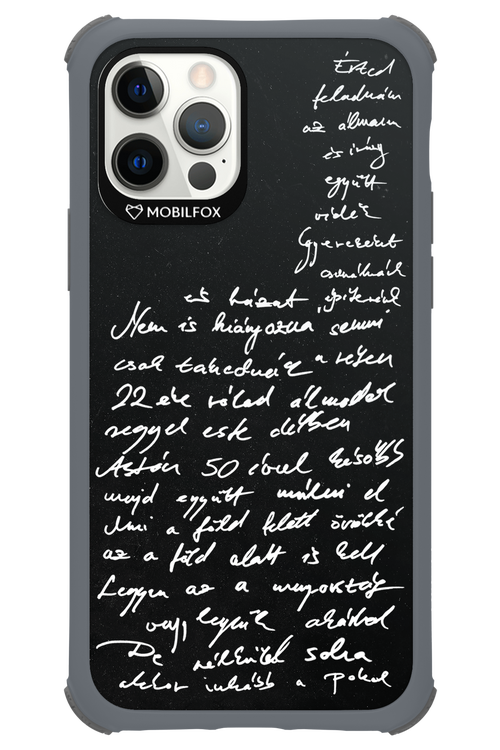 MOBILFOX
Érted
feladnám
az álmom
és így
együtt
Gyerekeket
csinálnánk
és házat építenénk
Nem is hiányozna semmi
csak takednék a rejen
22 éve rólad álmodok
reggel este délben
Aztán 50 évvel később
majd együtt múlni el
Ami a föld felett örökké
az a föld alatt is kell
Legyen az a mennyország
vagy legyünk akárhol
De nélküled soha
akkor inkább a pokol